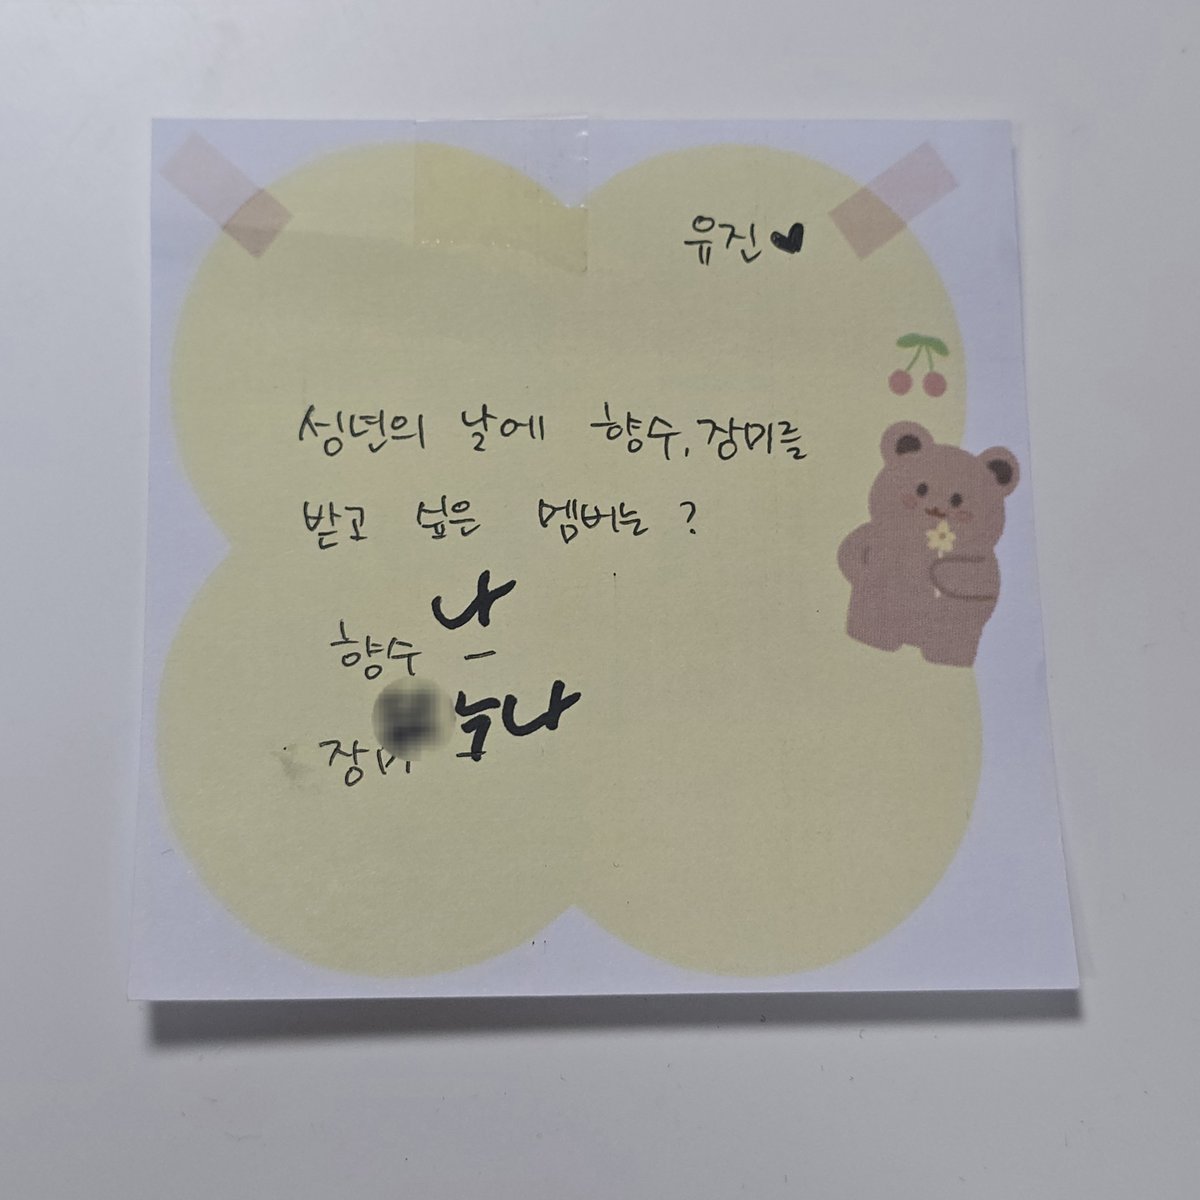 유진♥
성년의 날에 향수, 장미를
받고 싶은 멤버는?
나
향수 -
누나
장미